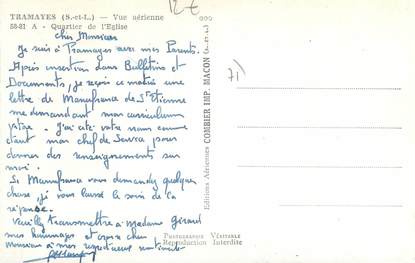 TRAMAYES (S.-et-L.) — Vue aérienne
58-21 A - Quartier de l'Eglise
12 €
71)
cher Monsieur
Je suis à Tramayes avec mes Parents.
Après insertion dans Bulletins et
Documents, je reçois ce matin une
lettre de Manufrance de St Etienne
me demandant mon curriculum
vitae. J'ai cité votre nom comme
étant mon chef de pour
donner des renseignements sur
moi.
Si Manufrance vous demandez quelque
chose, je vous laisse le soin de la
réponse.
Veuillez transmettre à Madame Gérard
mes hommages et croire cher
monsieur à mes respectueux sentiments
Editions Aériennes COMBIER IMP. MACON (S.-et-L.)
Photographie Véritable
Reproduction Interdite